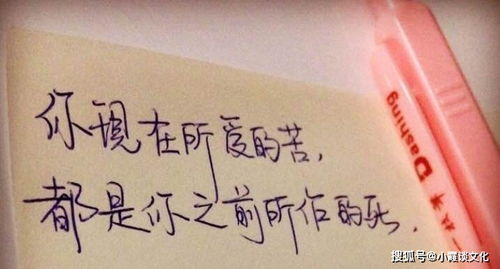 你現在所爱的苦，
都是你之前所作的死．
Dashing
搜狐号@小霞谈文化